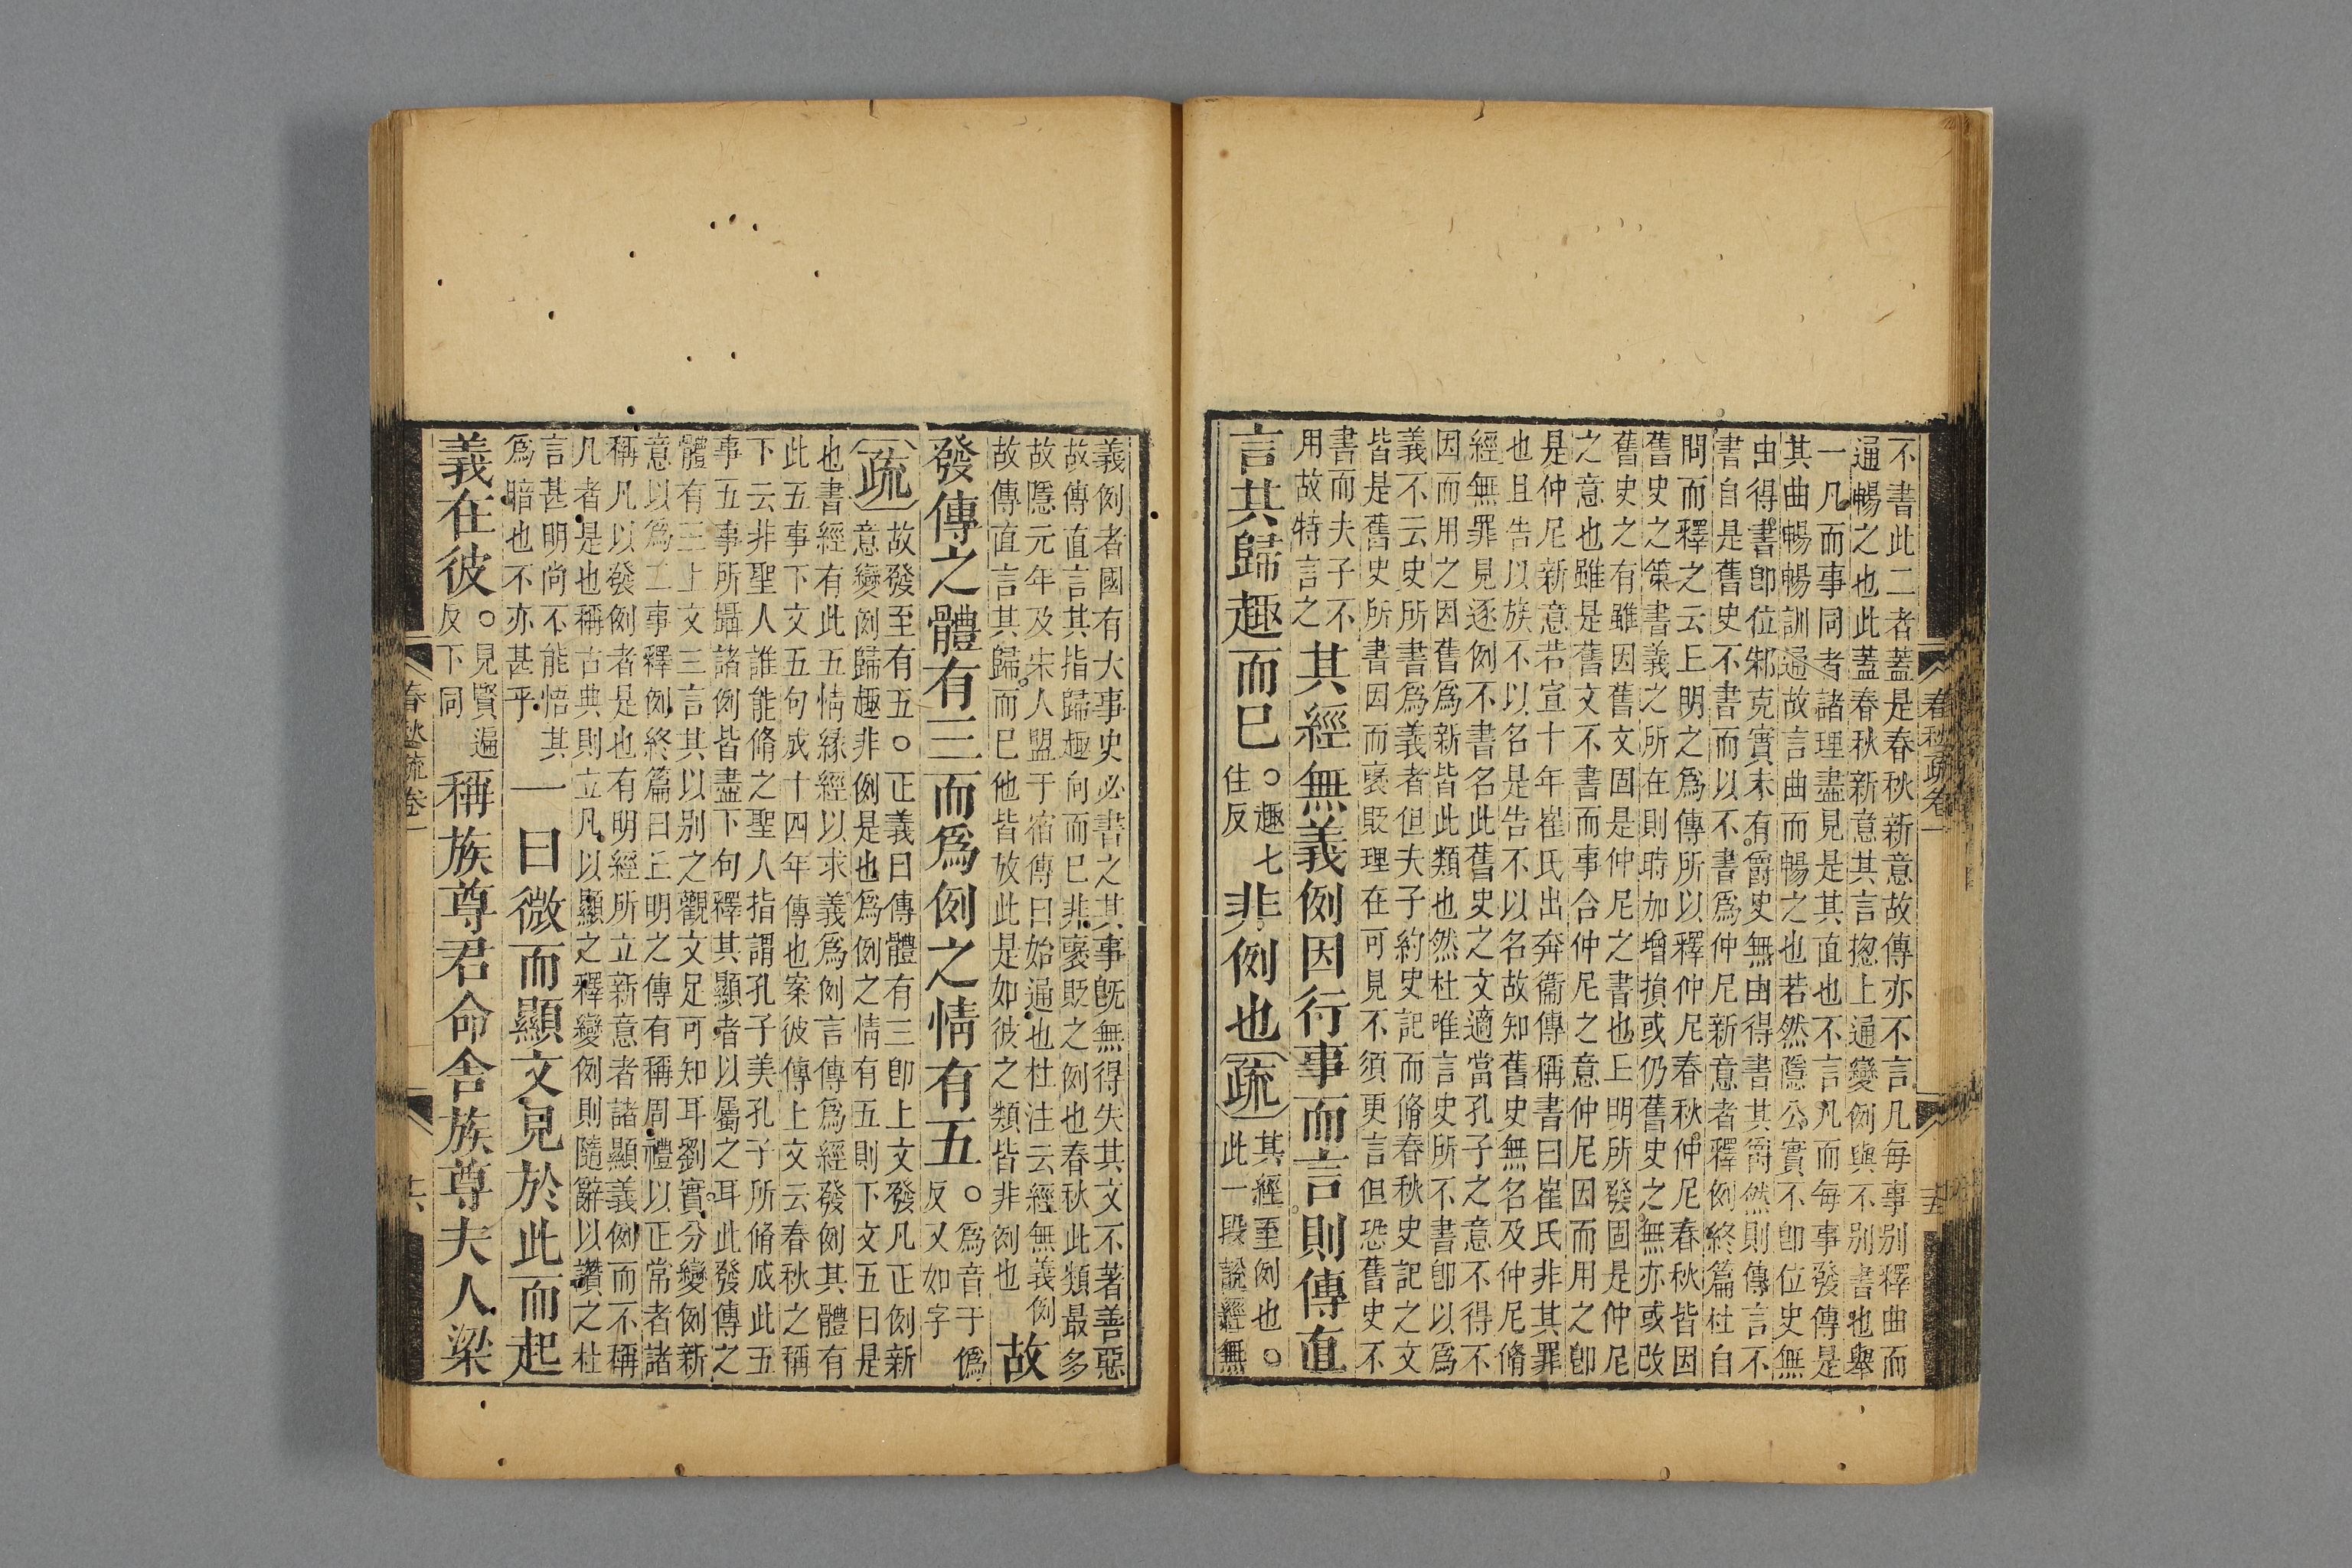 不書此二者蓋是春秋新意故傳亦不言凡每事别釋曲而
通暢之也此蓋春秋新意其言揔上通變例與不别書也舉
一凡而事同者諸理盡見是其直也不言凡而每事發傳是
其曲暢暢訓通故言曲而暢之也若然隱公實不卽位史無
由得書卽位邾克實未有爵史無由得書其爵然則傳言不
書自是舊史不書而以不書爲仲尼新意者釋例終篇杜自
問而釋之云丘明之爲傳所以釋仲尼春秋仲尼春秋皆因
舊史之策書義之所在則時加增損或仍舊史之無亦或改
舊史之有雖因舊文固是仲尼之書也丘明所發固是仲尼
之意也雖是舊文不書而事合仲尼之意仲尼因而用之卽
是仲尼新意若宣十年崔氏出奔衞傳稱書曰崔氏非其罪
也且告以族不以名是告不以名故知舊史無名及仲尼脩
經無罪見逐例不書名此舊史之文適當孔子之意不得不
因而用之因舊爲新皆此類也然杜唯言史所不書卽以爲
義不云史所書爲義者但夫子約史記而脩春秋史記之文
皆是舊史所書因而襃貶理在可見不須更言但恐舊史不
書而夫子不
用故特言之
其經無義例因行事而言則傳直
言其歸趣而已
○趣七
住反
非例也
疏
其經至例也○
此一段說經無
春秋疏卷一
十五
義例者國有大事史必書之其事旣無得失其文不著善惡
故傳直言其指歸趣向而已非襃貶之例也春秋此類最多
故隱元年及宋人盟于宿傳曰始通也杜注云經無義例
故傳直言其歸而已他皆放此是如彼之類皆非例也
故
發傳之體有三而爲例之情有五
○爲音于僞
反又如字
疏
故發至有五○正義曰傳體有三卽上文發凡正例新
意變例歸趣非例是也爲例之情有五則下文五曰是
也書經有此五情緣經以求義爲例言傳爲經發例其體有
此五事下文五句成十四年傳也案彼傳上文云春秋之稱
下云非聖人誰能脩之聖人指謂孔子美孔子所脩成此五
事五事所攝諸例皆盡下句釋其顯者以屬之耳此發傳之
體有三上文三言其以别之觀文足可知耳劉實分變例新
意以爲二事釋例終篇曰丘明之傳有稱周禮以正常者諸
稱凡以發例者是也有明經所立新意者諸顯義例而不稱
凡者是也稱古典則立凡以顯之釋變例則隨辭以讚之杜
言甚明尚不能悟其
爲暗也不亦甚乎
一曰微而顯文見於此而起
義在彼
○見賢遍
反下同
稱族尊君命舍族尊夫人梁
春秋疏卷一
十六